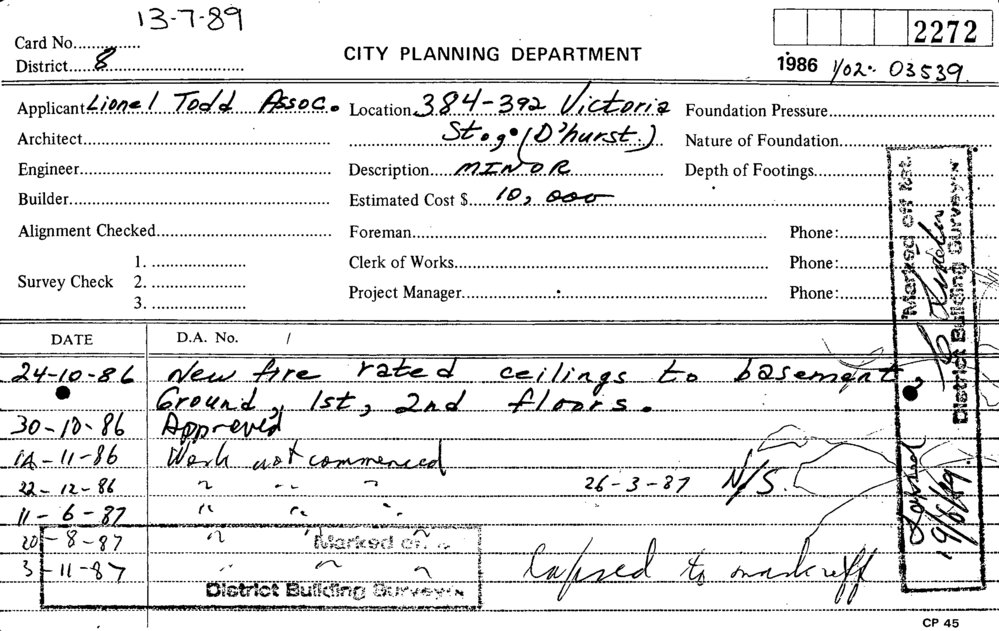 13-7-89
Card No.
District 8
CITY PLANNING DEPARTMENT
2272
1986 1/02. 03539
Applicant Lionel Todd Assoc.
Location 384-392 Victoria
St. (D'hurst.)
Foundation Pressure
Architect
Nature of Foundation
Engineer
Description MINOR
Depth of Footings
Builder
Estimated Cost $ 10,000
Alignment Checked
Foreman
Phone:
Survey Check
1.
2.
3.
Clerk of Works
Phone:
Project Manager
Phone:
DATE D.A. No. /
24-10-86 New fire rated ceilings to basement,
Ground, 1st, 2nd floors.
30-10-86 Approved
14-11-86 Work not commenced
22-12-86 " " " 26-3-87 N/S.
11-6-87 " " "
20-8-87 " " "
3-11-87 " " " lapsed to mark off
Marked off
District Building Surveyor
Marked off list.
District Building Surveyor
Lapsed
19/6/89.
CP 45